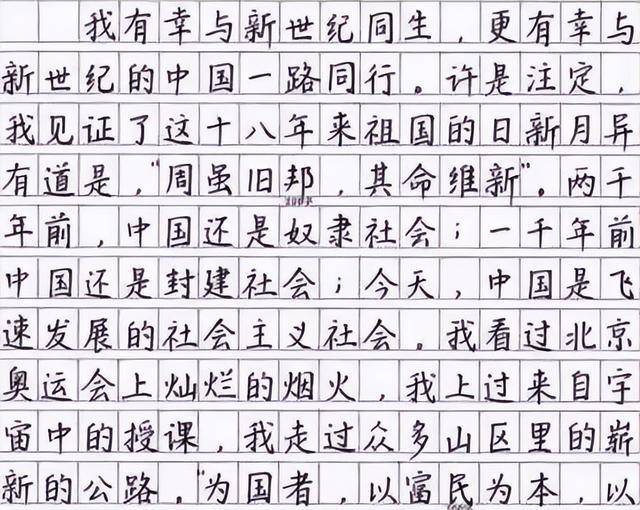 我有幸与新世纪同生，更有幸与
新世纪的中国一路同行。许是注定，
我见证了这十八年来祖国的日新月异
有道是，“周虽旧邦，其命维新”。两千
年前，中国还是奴隶社会；一千年前
中国还是封建社会；今天，中国是飞
速发展的社会主义社会。我看过北京
奥运会上灿烂的烟火，我上过来自宇
宙中的授课，我走过众多山区里的崭
新的公路。“为国者，以富民为本，以